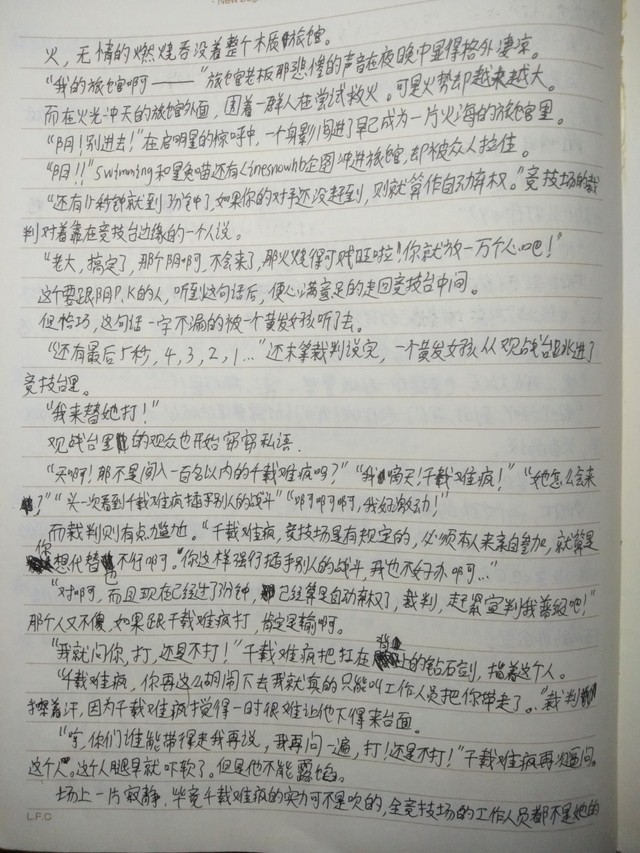 火，无情的燃烧吞没着整个木质旅馆。
“我的旅馆啊——”旅馆老板那悲惨的声音在夜晚中显得格外凄凉。
而在火光冲天的旅馆外面，围着一群人在尝试救火。可是火势却越来越大。
“阴！别进去！”在启明星的惊呼中，一个身影闯进了早已成为一片火海的旅馆里。
“阴！！”swimming和星兔喵还有linesnowhb企图冲进旅馆，却被众人拉住。
“还有15秒钟就到3分钟了，如果你的对手还没赶到，则就算作自动弃权。”竞技场的裁
判对着靠在竞技台边缘的一个人说。
“老大，搞定了，那个阴啊，不会来了，那火烧得可贼旺啦！你就放一万个心吧！”
这个要跟阴P.K的人，听到这句话后，便心满意足的走回竞技台中间。
但恰巧，这句话一字不漏的被一个黄发女孩听了去。
“还有最后5秒，4，3，2，1…”还未等裁判说完，一个黄发女孩从观战台跳进了
竞技台里。
“我来替她打！”
观战台里的观众也开始窃窃私语.
“天啊！那不是闯入一百名以内的千载难疯吗？”“我嘀天！千载难疯！”“她怎么会来
？”“头一次看到千载难疯插手别人的战斗”“啊啊啊啊，我好激动！”
而裁判则有点尴尬。“千载难疯，竞技场是有规定的，必须本人来亲自参加，就算是
你想代替也不行啊。”你这样强行插手别人的战斗，我也不好办啊…”
“对啊，而且现在已经过了3分钟，已经算是自动弃权了，裁判，赶紧宣判我晋级吧！”
那个人又不傻，如果跟千载难疯打，肯定是输啊。
“我就问你，打，还是不打！”千载难疯把扛在背上的钻石剑，指着这个人。
“千载难疯，你再这么胡闹下去我就真的只能叫工作人员把你带走了。”裁判
擦着汗，因为千载难疯搅得一时很难让他下得来台面。
“哼，你们谁能带得走我再说，我再问一遍，打！还是不打！”千载难疯再次逼问
这个人。这个人腿早就吓软了。但是他不能露馅。
场上一片寂静.毕竟千载难疯的实力可不是吹的，全竞技场的工作人员都不是她的
L.F.C